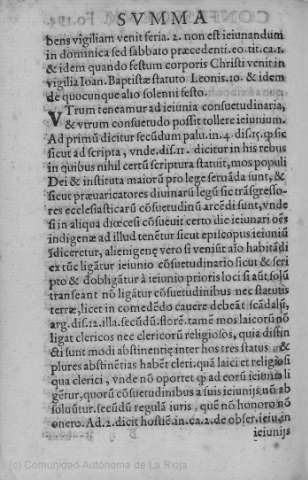 SVMMA
bens vigiliam venit feria. 2. non est ieiunandum
in dominica sed sabbato præcedenti. eo. tit. ca. 1.
& idem quando festum corporis Christi venit in
vigilia Ioan. Baptistæ statuto Leonis. 10. & idem
de quocunque alio solenni festo.
VTrum teneamur ad ieiunia consuetudinaria,
& vtrum consuetudo possit tollere ieiunium.
Ad primū dicitur secūdum palu. in. 4. dis. 15. φ sic
sicut ad scripta, vnde. dis. 11. dicitur in his rebus
in quibus nihil certū scriptura statuit, mos populi
Dei & instituta maiorū pro lege seruāda sunt, &
sicut præuaricatores diuinarū legū sic trāsgresso-
res ecclesiasticarū cōsuetudinū arcēdi sunt, vnde
si in aliqua diœcesi cōsueuit certo die ieiunari oēs
indigenæ ad illud tenētur sicut episcopus ieiuniū
īdiceretur, alienigenę vero si veniūt aīo habitādi
ex tūc ligātur ieiunio cōsuetudinario sicut & scri
pto & dobligātur à ieiunio prioris loci si aūt solū
transeant nō ligātur cōsuetudinibus nec statutis
terræ, licet in comedēdo cauere debeāt scādalū,
arg. dis. 12. illa. secūdū. flore. tamē mos laicorū nō
ligat clericos nec clericorū religiosos, quia distin
cti sunt modi abstinentię inter hos tres status &
plures abstinētias habēt cleri. quā laici et religiosi
quā clerici, vnde nō oportet φ ad eorū ieiunia li
gētur, quorū cōsuetudinibus a suis ieiunijs nō ab
soluūtur. secūdū regulā iuris, quē nō honoro nō
onero. Ad. 2. dicit hostiē. in. ca. 2. de obser. ieiu. in
ieiunijs
(c) Comunidad Autonoma de La Rioja